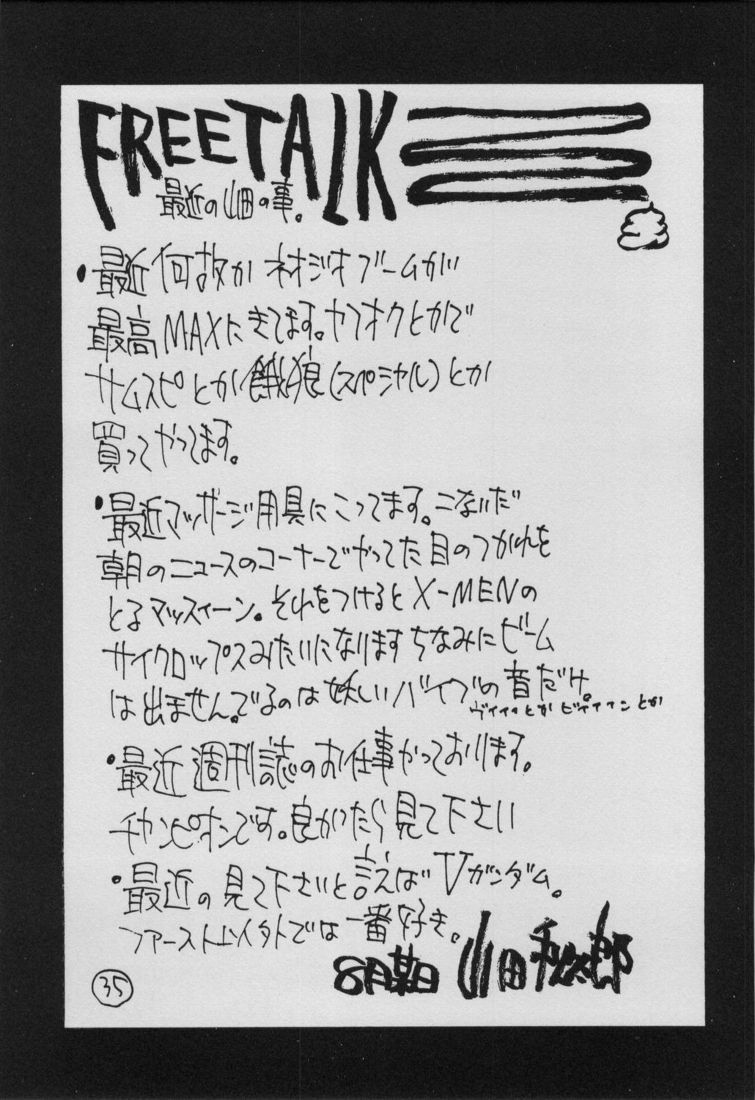 FREETALK
最近の山田の事。
・最近何故かネオジオブームが
最高MAXにきてます。ヤフオクとかで
サムスピとか餓狼(スペシャル)とか
買ってやってます。
・最近マッサージ用具にこってます。こないだ
朝のニュースのコーナーでやってた目のつかれを
とるマッスィーン。それをつけるとX-MENの
サイクロップスみたいになります ちなみにビーム
は出ません。でるのは妖しいバイブの音だけ。
ヴィィィとか ビィィィンとか
・最近週刊誌のお仕事やっております。
チャンピオンです。良かったら見て下さい
・最近の見て下さいと言えばVガンダム。
ファースト以外では一番好き。
8月某日 山田 郎
35